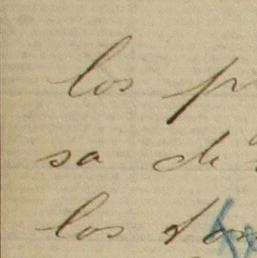 los p
sa de
los